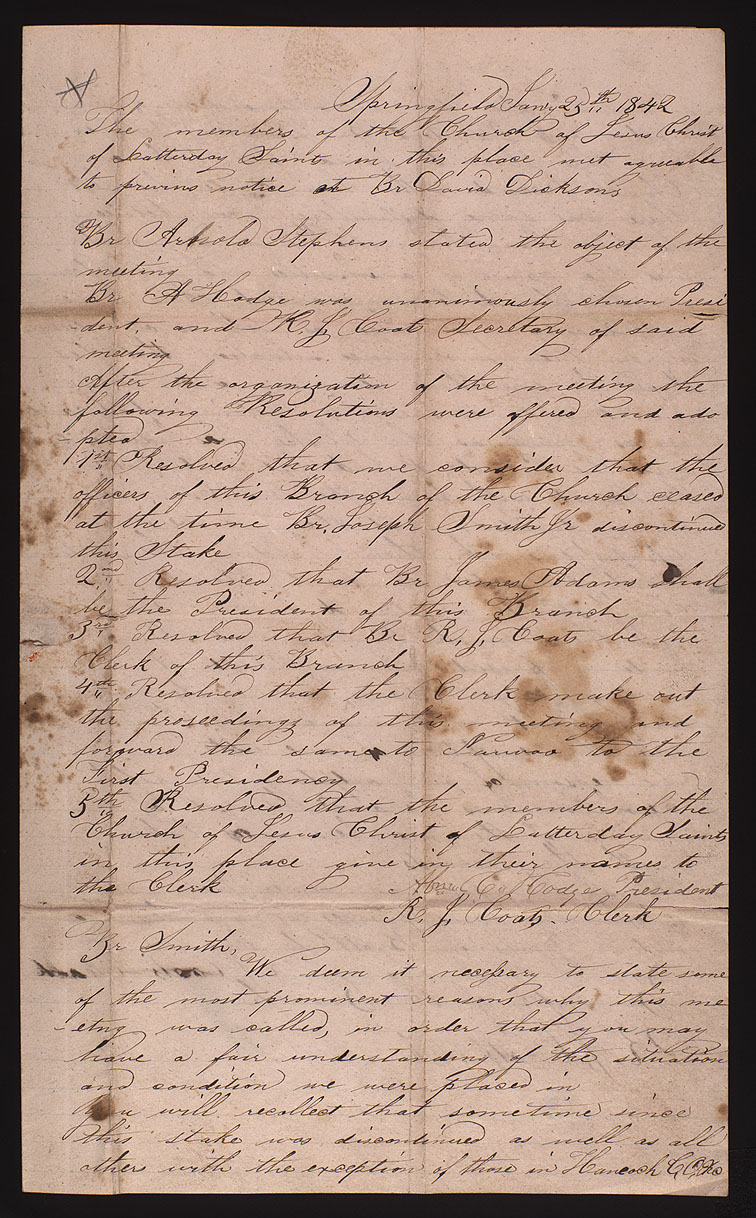 Springfield Jany 25th 1842
The members of the Church of Jesus Christ
of Latterday Saint in this place met agreeable
to previus notice at Br David Dicksons
Br Arnold Stephens stated the object of the
meeting
Br A Hodge was unanimously chosen Presi
dent, and R. J. Coats Secretary of said
meeting
After the organization of the meeting the
following Resolutions were offered and ado
pted
1st Resolved that we consider that the
officers of this Branch of the Church ceased
at the time Br. Joseph Smith Jr discontinued
this Stake
2nd Resolved that Br James Adams shall
be the President of this Branch
3rd Resolved that Br R. J. Coats be the
Clerk of this Branch
4th Resolved that the Clerk make out
the proseedings of this meeting and
forward the same to Nauvoo to the
First Presidency
5th Resolved that the members of the
Church of Jesus Christ of Latterday Saints
in this place give in their names to
the Clerk Hodge President
R. J. Coats. Clerk
Br Smith,
We deem it necessary to state some
of the most prominent reasons why this me
eting was called, in order that you may
have a fair understanding of the situation
and condition we were placed in
You will recollect that sometime since
this stake was discontinued as well as all
others with the exception of those in Hancock